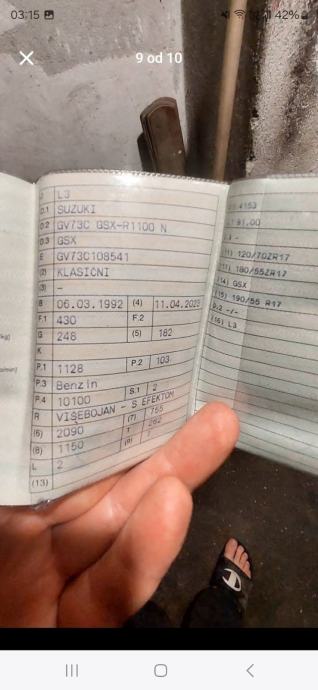 03:15
42%
9 od 10
L3
D.1 SUZUKI
D.2 GV73C GSX-R1100 N
D.3 GSX
E GV73C108541
(2) KLASIČNI
(3) —
B 06.03.1992 (4) 11.04.2023
F.1 430 F.2
G 248 (5) 182
K
P.1 1128 P.2 103
P.3 Benzin
P.4 10100 S.1 2
R VIŠEBOJAN - S EFEKTOM
(6) 2090 (7) 755
(8) 1150 T 262
L 2 (9)
(13)
4153
91,00
120/70ZR17
180/55ZR17
(14) GSX
(15) 190/55 R17
D.2 -/-
(16) L3